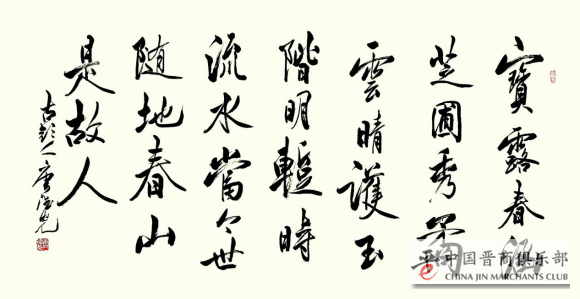 寶露春
芝圃秀
雲晴護玉
階明暫時
流水當今世
随地春山
是故人
古彭人
中国晋商俱乐部
CHINA JIN MARCHANTS CLUB